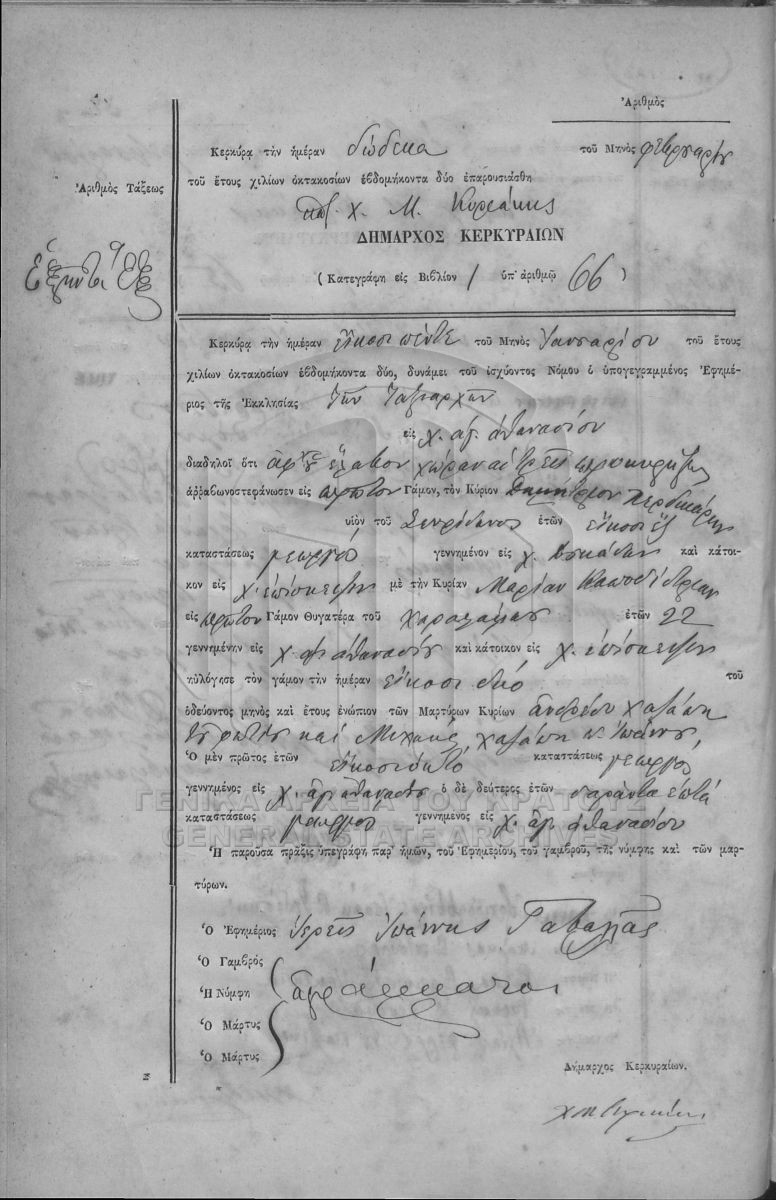 Ἀριθμὸς
Κερκύρᾳ τὴν ἡμέραν δώδεκα τοῦ Μηνὸς φεβρουαρίου
τοῦ ἔτους χιλίων ὀκτακοσίων ἑβδομήκοντα δύο ἐπαρουσιάσθη
Ἀριθμὸς Τάξεως
Χ. Μ. Κυριάκης
ΔΗΜΑΡΧΟΣ ΚΕΡΚΥΡΑΙΩΝ
Ἑξῆντα ἕξ
(Κατεγράφη εἰς Βιβλίον 1 ὑπ' ἀριθμῷ 66)
Κερκύρᾳ τὴν ἡμέραν εἴκοσι πέντε τοῦ Μηνὸς Ἰανουαρίου τοῦ ἔτους
χιλίων ὀκτακοσίων ἑβδομήκοντα δύο, δυνάμει τοῦ ἰσχύοντος Νόμου ὁ ὑπογεγραμμένος Ἐφημέ-
ριος τῆς Ἐκκλησίας τῶν Ταξιαρχῶν
εἰς χ. ἁγ. ἀθανασίου
διαδηλοῖ ὅτι ἔλαβον χώραν αἱ τρεῖς προκηρύξεις
ἀρραβωνοστεφάνωσεν εἰς πρῶτον Γάμον, τὸν Κύριον Δημήτριον Περδικάρην
υἱὸν τοῦ Σπυρίδωνος ἐτῶν εἴκοσι ἕξ
καταστάσεως γεωργὸς γεννημένον εἰς χ. καὶ κάτοι-
κον εἰς χ. ἐπίσκεψιν μὲ τὴν Κυρίαν Μαρίαν Καποδίστριαν
εἰς πρῶτον Γάμον Θυγατέρα τοῦ Χαραλάμπους ἐτῶν 22
γεννημένην εἰς χ. ἁγ. ἀθανασίου καὶ κάτοικον εἰς χ. ἐπίσκεψιν
ηὐλόγησε τὸν γάμον τὴν ἡμέραν εἴκοσι δύο τοῦ
ὁδεύοντος μηνὸς καὶ ἔτους ἐνώπιον τῶν Μαρτύρων Κυρίων ἀνδρέου
καὶ
Ὁ μὲν πρῶτος ἐτῶν εἰκοσιοκτὸ καταστάσεως γεωργὸς
γεννημένος εἰς χ. ἁγ. ἀθανασίου ὁ δὲ δεύτερος ἐτῶν σαράντα ἑπτά
καταστάσεως γεωργὸς γεννημένος εἰς χ. ἁγ. ἀθανασίου
ΓΕΝΙΚΑ ΑΡΧΕΙΑ ΤΟΥ ΚΡΑΤΟΥΣ
GENERAL STATE ARCHIVES
Ἡ παροῦσα πρᾶξις ὑπεγράφη παρ' ἡμῶν, τοῦ Ἐφημερίου, τοῦ γαμβροῦ, τῆς νύμφης καὶ τῶν μαρ-
τύρων.
Ὁ Ἐφημέριος Ἱερεὺς Ἰωάννης
Ὁ Γαμβρὸς
Ἡ Νύμφη ἀγράμματοι
Ὁ Μάρτυς
Ὁ Μάρτυς
Δήμαρχος Κερκυραίων.
Χ Μ Κυριάκης